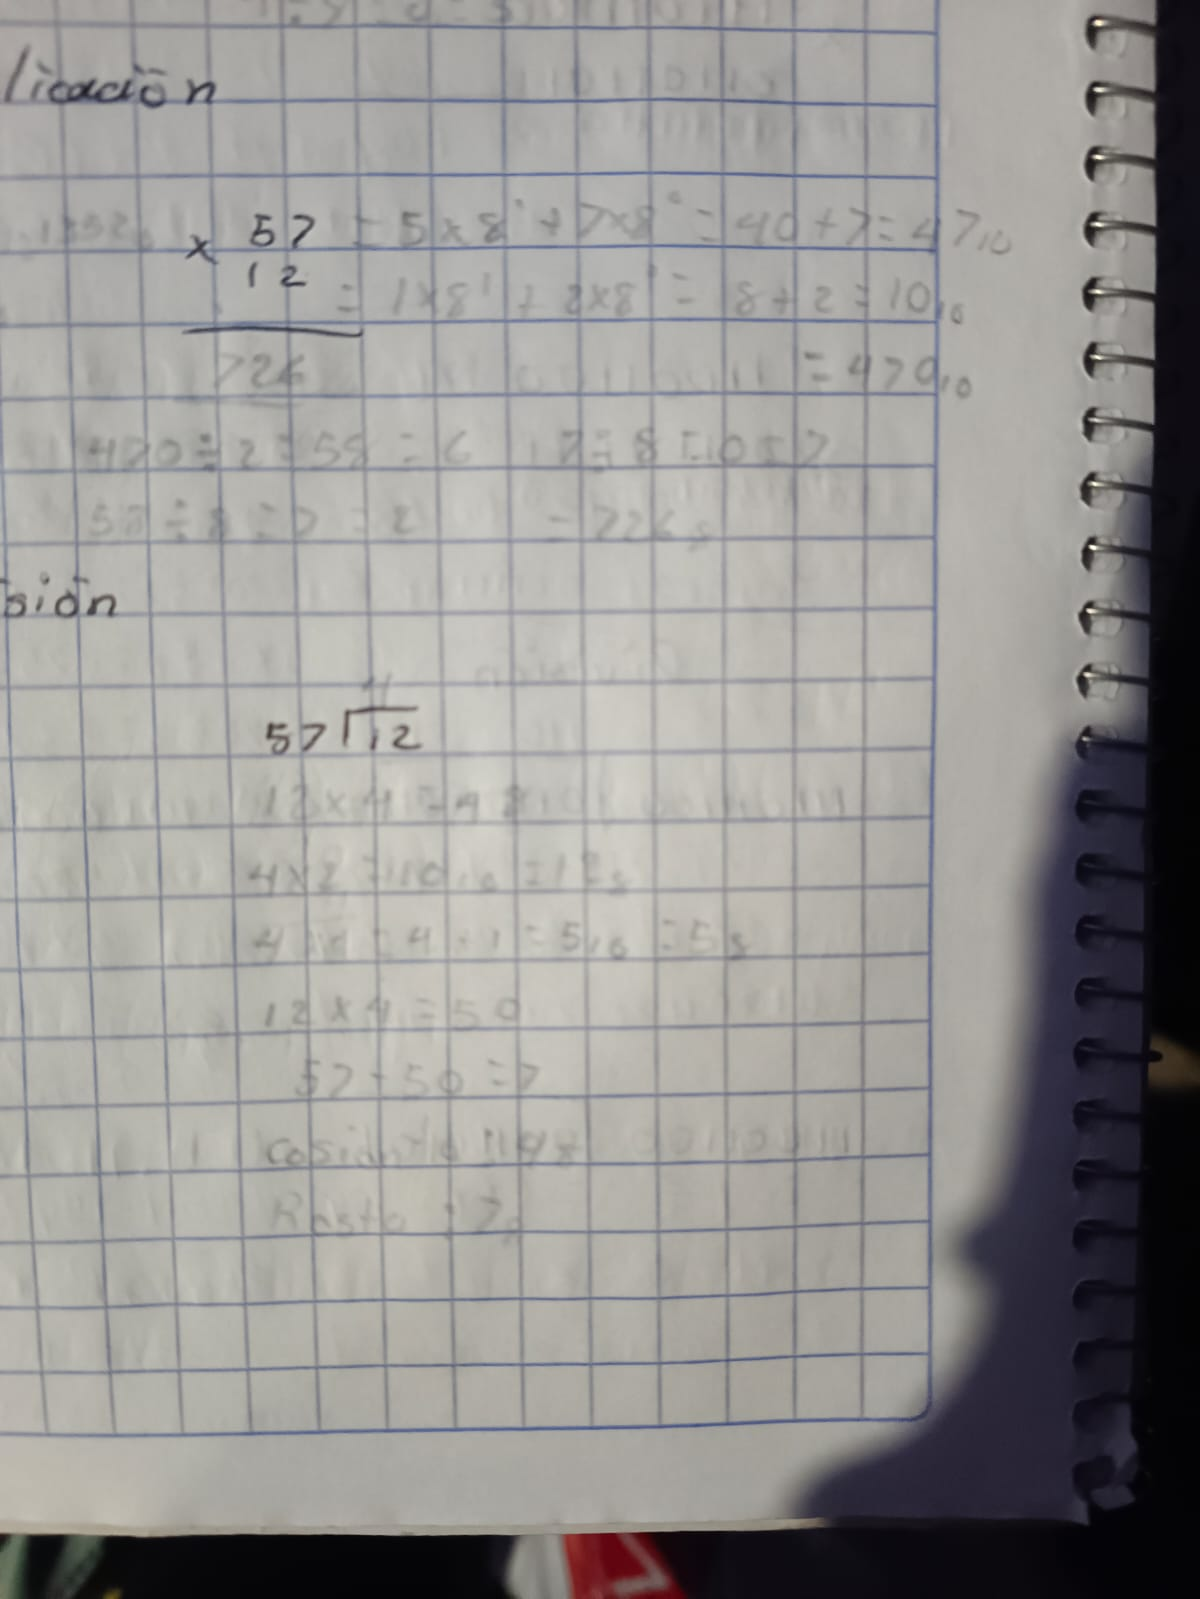 licación
× 57 = 5×8¹ + 7×8⁰ = 40+7=47₁₀
12 = 1×8¹ + 2×8⁰ = 8+2=10₁₀
726 = 470₁₀
58 = 6 7÷8=0=7
= 7 = 2 = 726₈
sión
4
57 12
12×4=
4×2=10₁₀=12₈
= 4+1=5₁₀=5₈
12×4=50
57-50=7
4₈
Resto: 7₈